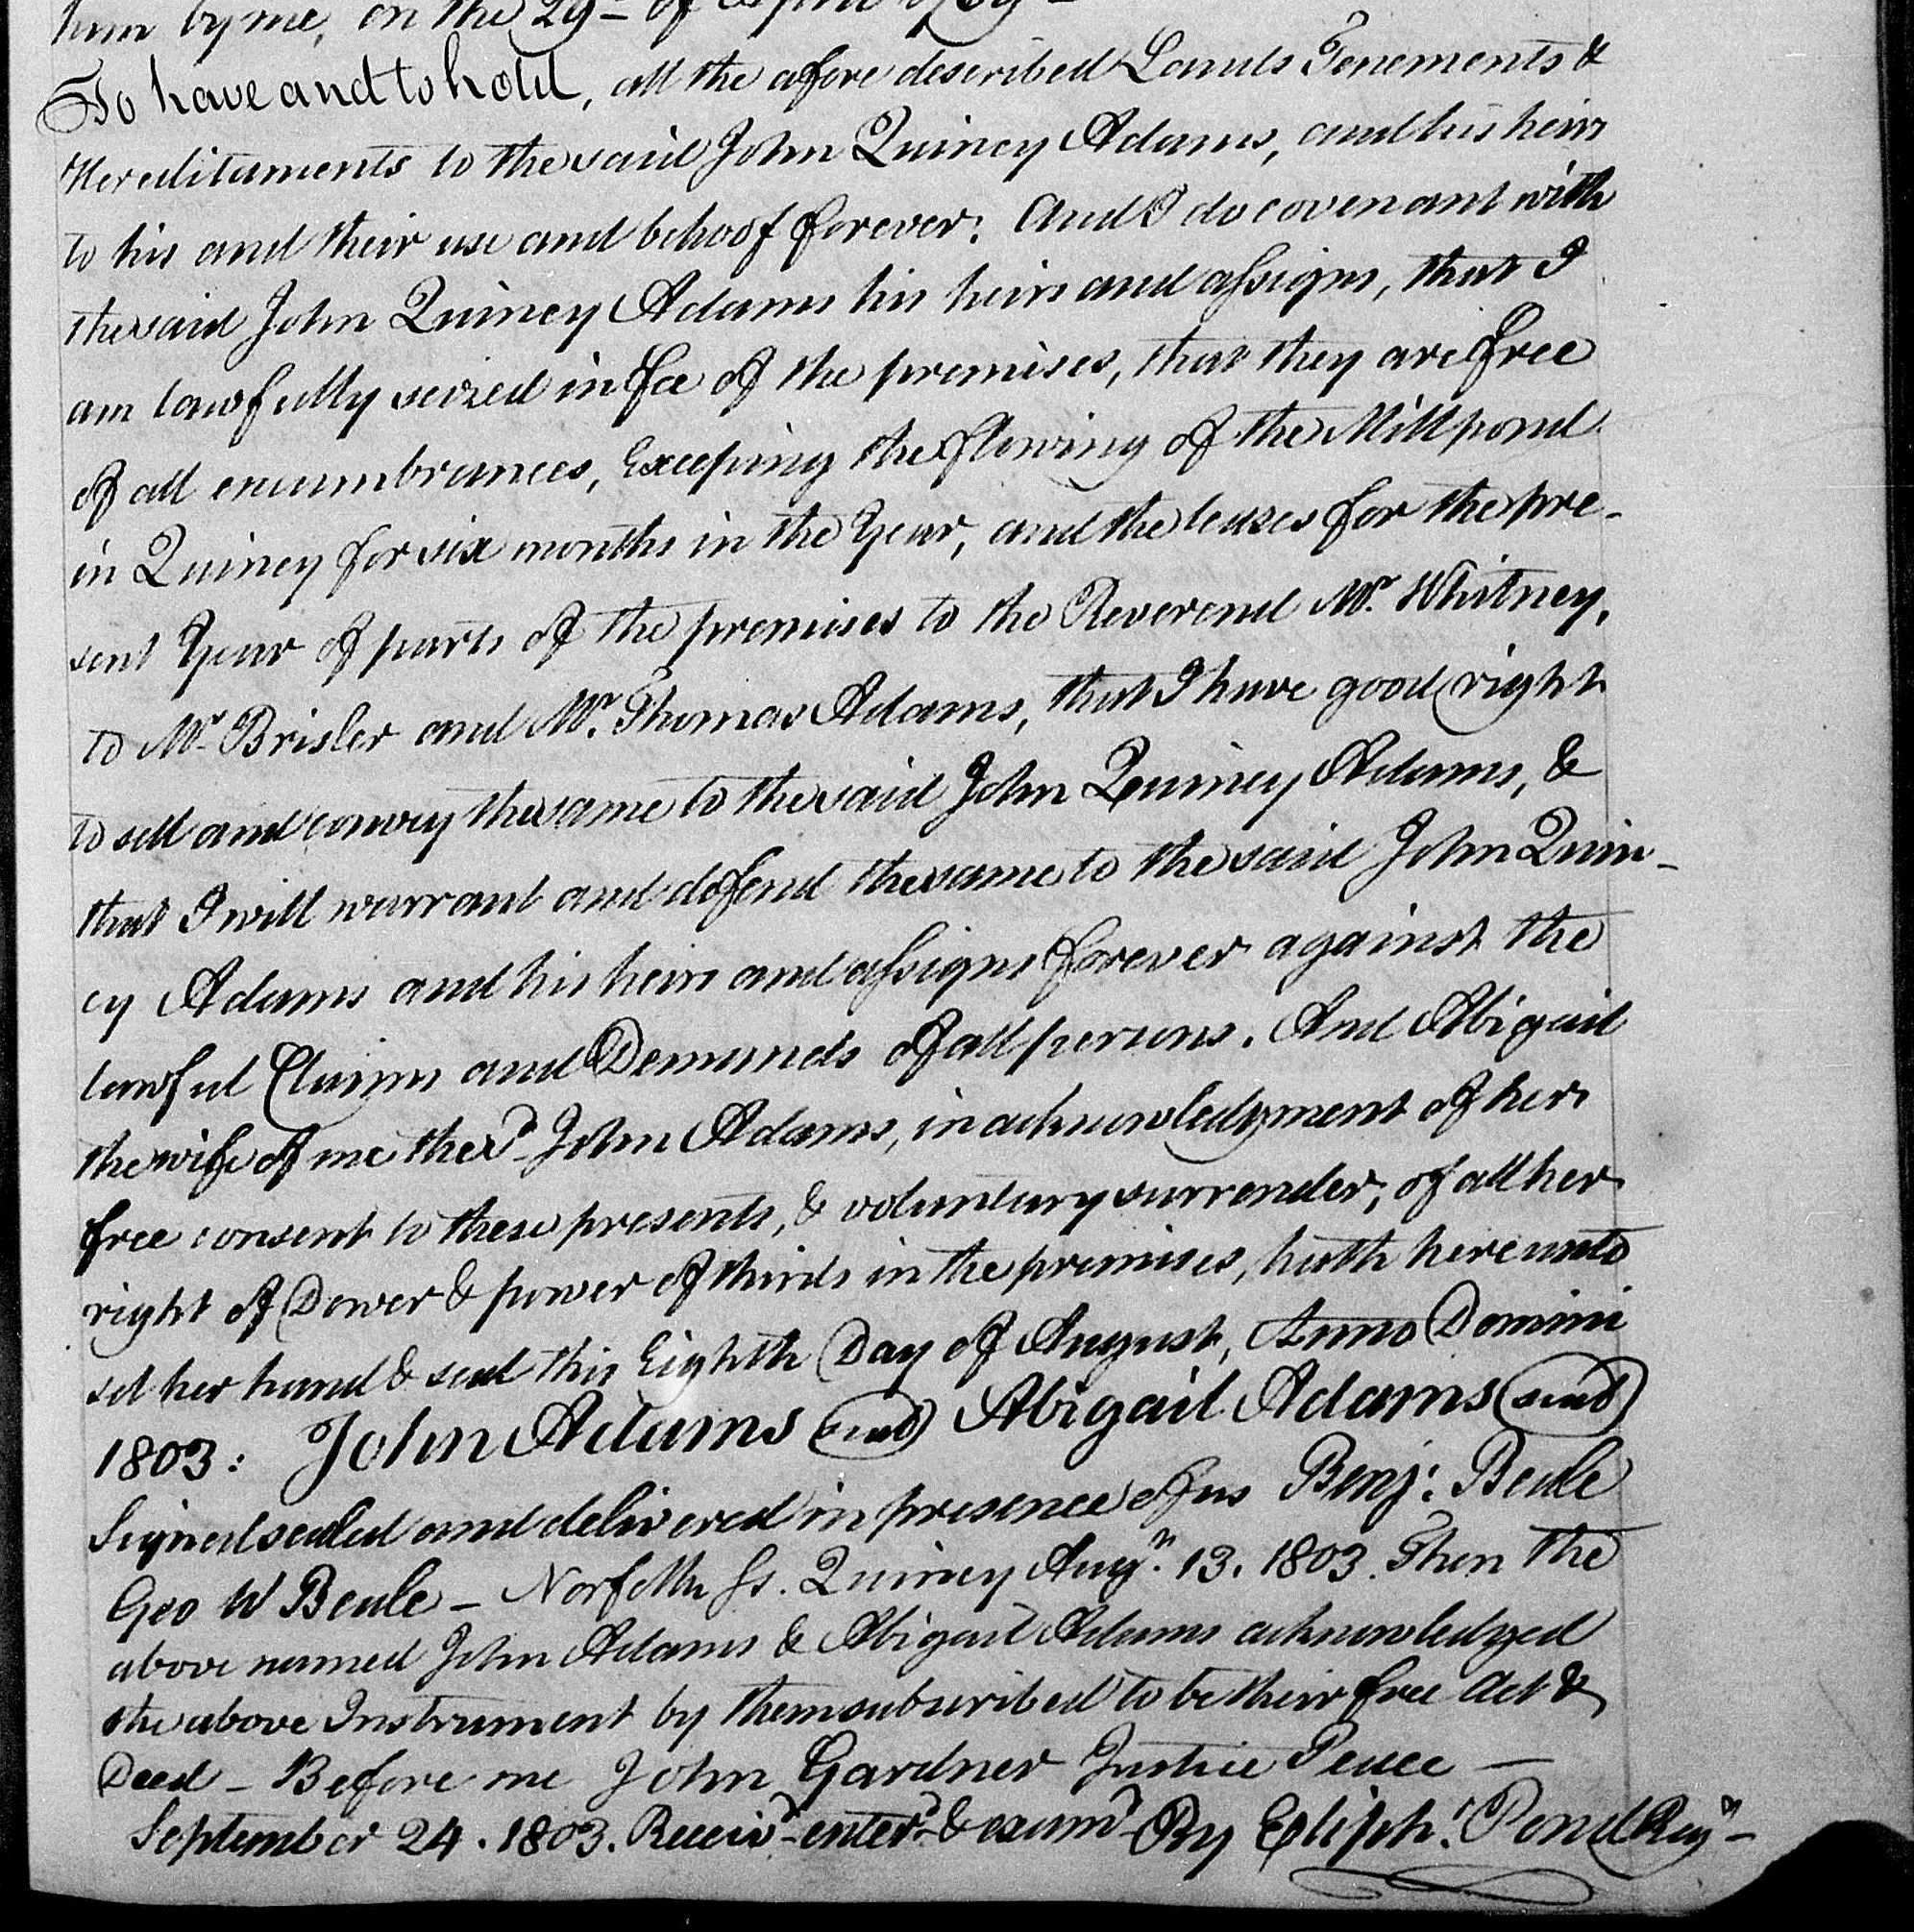 him by me, on the 29th of
To have and to hold, all the afore described Lands Tenements &
Hereditaments to the said John Quincy Adams, and his heirs
to his and their use and behoof forever: And I do covenant with
the said John Quincy Adams his heirs and assigns, that I
am lawfully seized in fee of the premises, that they are free
of all encumbrances, Excepting the flowing of the Mill pond
in Quincy for six months in the Year, and the leases for the pre-
sent Year of parts of the premises to the Reverend Mr. Whitney,
to Mr. Brisler and Mr. Thomas Adams, that I have good right
to sell and convey the same to the said John Quincy Adams, &
that I will warrant and defend the same to the said John Quin-
cy Adams and his heirs and assigns forever against the
lawful Claims and Demands of all persons. And Abigail
the wife of me the sd. John Adams, in acknowledgment of her
free consent to these presents, & voluntary surrender, of all her
right of Dower & power of thirds in the premises, hath hereunto
set her hand & seal this Eighth Day of August, Anno Domini
1803: John Adams (seal) Abigail Adams (seal)
Signed sealed and delivered in presence of us Benj: Beale
Geo W Beale - Norfolk Ss. Quincy Augst. 13. 1803. Then the
above named John Adams & Abigail Adams acknowledged
the above Instrument by them subscribed to be their free Act &
Deed - Before me John Gardner Justice Peace -
September 24. 1803. Receivd. enterd. & examd. By Eliph: Pond Regr -